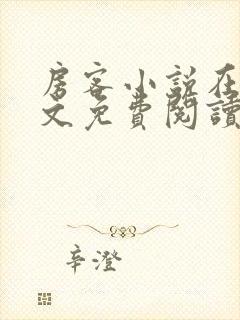 房客小说在
文免費閱讀
辛澄